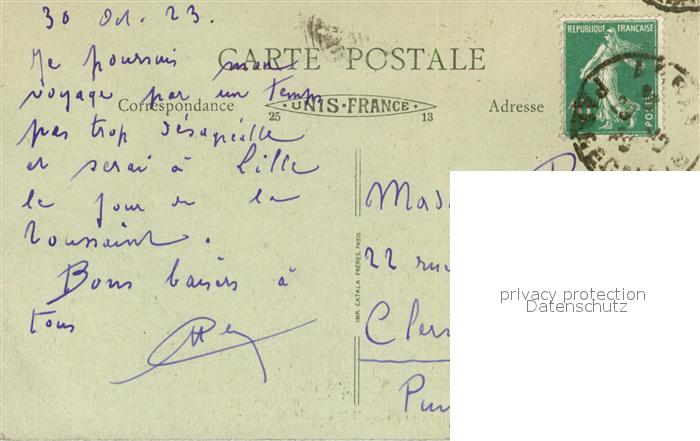 30 Oct. 23.
CARTE POSTALE
Je poursuis mon
voyage par un temps
pas trop désagréable
et serai à Lille
le jour de la
Toussaint.
Bons baisers à
tous
Correspondance
UNIS-FRANCE
25 13
Adresse
REPUBLIQUE FRANÇAISE
POSTES
IMP. CATALA FRÈRES, PARIS
22 rue
privacy protection
Datenschutz